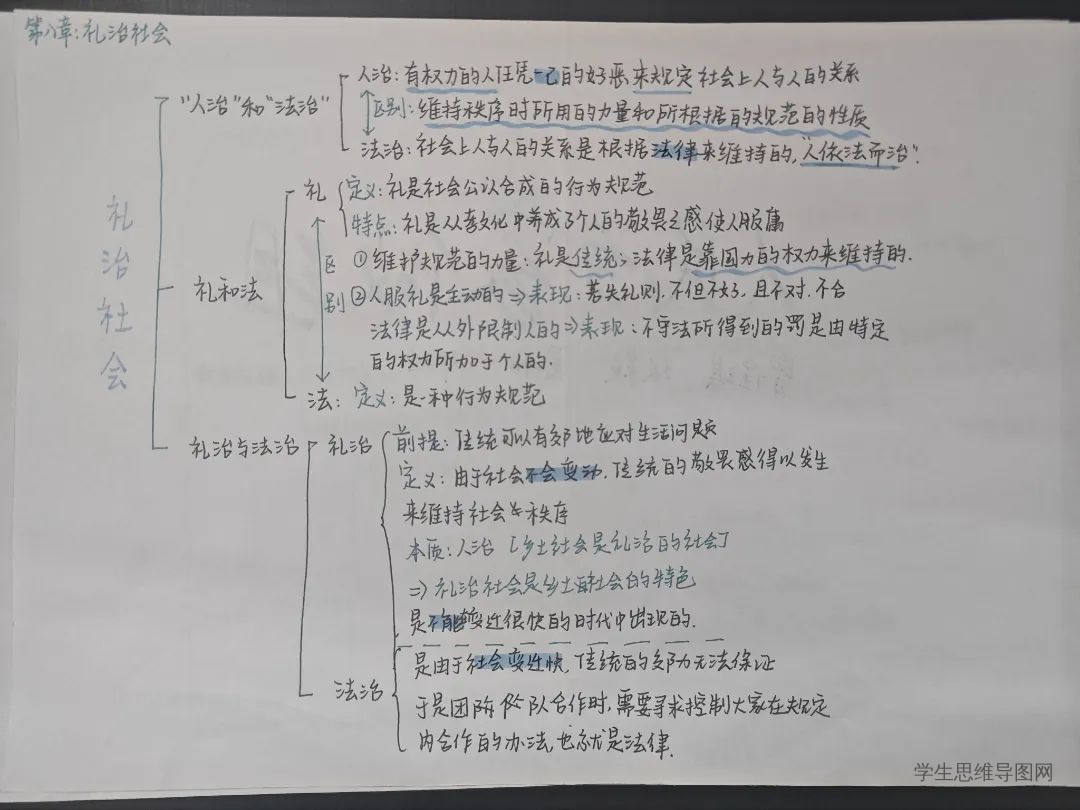 第八章：礼治社会
礼治社会
"人治"和"法治"
人治：有权力的人任凭一己的好恶来规定社会上人与人的关系
区别：维持秩序时所用的力量和所根据的规范的性质
法治：社会上人与人的关系是根据法律来维持的，"人依法而治"．
礼和法
礼
定义：礼是社会公认合成的行为规范
特点：礼是从教化中养成了个人的敬畏之感使人服膺
区别
①维护规范的力量：礼是传统；法律是靠国力的权力来维持的．
②人服礼是主动的⇒表现：若失礼则，不但不好，且不对、不合
法律是从外限制人的⇒表现：不守法所得到的罚是由特定
的权力所加于个人的．
法：定义：是一种行为规范
礼治与法治
礼治
前提：传统可以有效地应对生活问题
定义：由于社会不会变动，传统的敬畏感得以发生
来维持社会 秩序
本质：人治［乡土社会是礼治的社会］
⇒礼治社会是乡土社会的特色
是不能变迁很快的时代中出现的．
法治
是由于社会变迁快，传统的效力无法保证
于是团 队合作时，需要寻求控制大家在规定
内合作的办法，也就是法律．
学生思维导图网